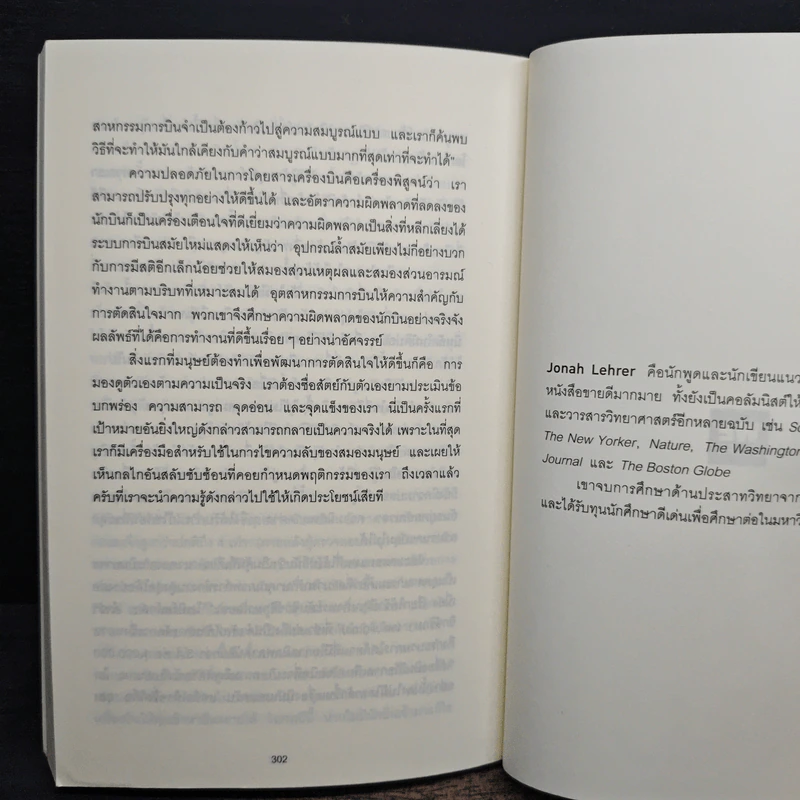 สาหกรรมการบินจำเป็นต้องก้าวไปสู่ความสมบูรณ์แบบ และเราก็ค้นพบ
วิธีที่จะทำให้มันใกล้เคียงกับคำว่าสมบูรณ์แบบมากที่สุดเท่าที่จะทำได้"
ความปลอดภัยในการโดยสารเครื่องบินคือเครื่องพิสูจน์ว่า เรา
สามารถปรับปรุงทุกอย่างให้ดีขึ้นได้ และอัตราความผิดพลาดที่ลดลงของ
นักบินก็เป็นเครื่องเตือนใจที่ดีเยี่ยมว่าความผิดพลาดเป็นสิ่งที่หลีกเลี่ยงได้
ระบบการบินสมัยใหม่แสดงให้เห็นว่า อุปกรณ์ล้ำสมัยเพียงไม่กี่อย่างบวก
กับการมีสติอีกเล็กน้อยช่วยให้สมองส่วนเหตุผลและสมองส่วนอารมณ์
ทำงานตามบริบทที่เหมาะสมได้ อุตสาหกรรมการบินให้ความสำคัญกับ
การตัดสินใจมาก พวกเขาจึงศึกษาความผิดพลาดของนักบินอย่างจริงจัง
ผลลัพธ์ที่ได้คือการทำงานที่ดีขึ้นเรื่อย ๆ อย่างน่าอัศจรรย์
สิ่งแรกที่มนุษย์ต้องทำเพื่อพัฒนาการตัดสินใจให้ดีขึ้นก็คือ การ
มองดูตัวเองตามความเป็นจริง เราต้องซื่อสัตย์กับตัวเองยามประเมินข้อ
บกพร่อง ความสามารถ จุดอ่อน และจุดแข็งของเรา นี่เป็นครั้งแรกที่
เป้าหมายอันยิ่งใหญ่ดังกล่าวสามารถกลายเป็นความจริงได้ เพราะในที่สุด
เราก็มีเครื่องมือสำหรับใช้ในการไขความลับของสมองมนุษย์ และเผยให้
เห็นกลไกอันสลับซับซ้อนที่คอยกำหนดพฤติกรรมของเรา ถึงเวลาแล้ว
ครับที่เราจะนำความรู้ดังกล่าวไปใช้ให้เกิดประโยชน์เสียที
302
Jonah Lehrer คือนักพูดและนักเขียนแนว
หนังสือขายดีมากมาย ทั้งยังเป็นคอลัมนิสต์ให้
และวารสารวิทยาศาสตร์อีกหลายฉบับ เช่น
The New Yorker, Nature, The Washington
Journal และ The Boston Globe
เขาจบการศึกษาด้านประสาทวิทยาจาก
และได้รับทุนนักศึกษาดีเด่นเพื่อศึกษาต่อใน